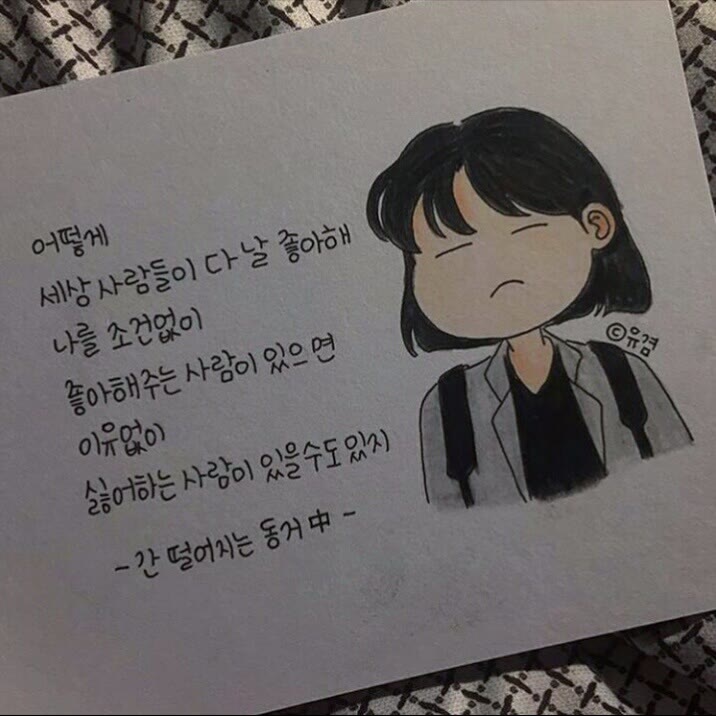 어떻게
세상 사람들이 다 날 좋아해
나를 조건없이
좋아해주는 사람이 있으면
이유없이
싫어하는 사람이 있을수도 있지
- 간 떨어지는 동거 中 -
©유겸